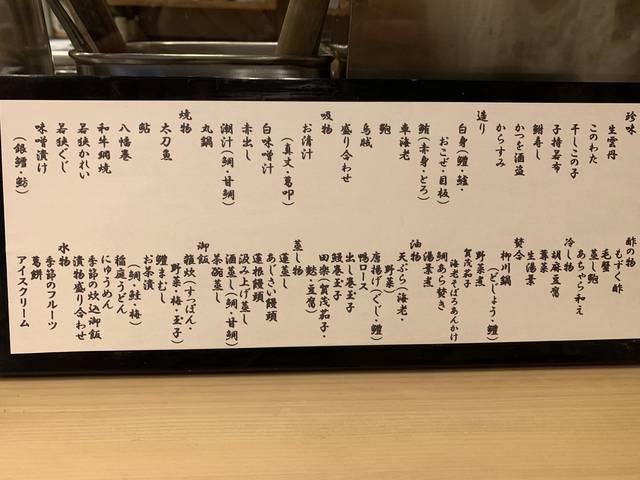 珍味
生雲丹
このわた
干しこの子
子持若布
鮒寿し
かつを酒盗
からすみ
造り
白身(鱧・鱸・
おこぜ・目板)
鮪(赤身・とろ)
車海老
鮑
烏賊
盛り合わせ
吸物
お清汁
(真丈・葛叩)
白味噌汁
赤出し
潮汁(鯛・甘鯛)
丸鍋
焼物
太刀魚
鮎
八幡巻
和牛網焼
若狭かれい
若狭ぐじ
味噌漬け
(銀鱈・鲂)
酢の物
もずく酢
毛蟹
蒸し鮑
あちゃら和え
冷し物
胡麻豆腐
蓴菜
生湯葉
焚合
柳川鍋
(どじょう・鱧)
野菜煮
賀茂茄子
海老そぼろあんかけ
鯛あら焚き
湯葉煮
油物
天ぷら(海老・
野菜)
唐揚げ(ぐじ・鱧)
鴨ロース
出し巻玉子
鰻巻玉子
田楽(賀茂茄子・
麩・豆腐)
蒸し物
蓮蒸し
あじさい饅頭
蓮根饅頭
汲み上げ蒸し
酒蒸し(鯛・甘鯛)
茶碗蒸し
御飯
雑炊(すっぽん・
野菜・梅・玉子)
鱧まむし
お茶漬
(鯛・鮭・梅)
稲庭うどん
にゅうめん
季節の炊込御飯
漬物盛り合わせ
水物
季節のフルーツ
葛餅
アイスクリーム